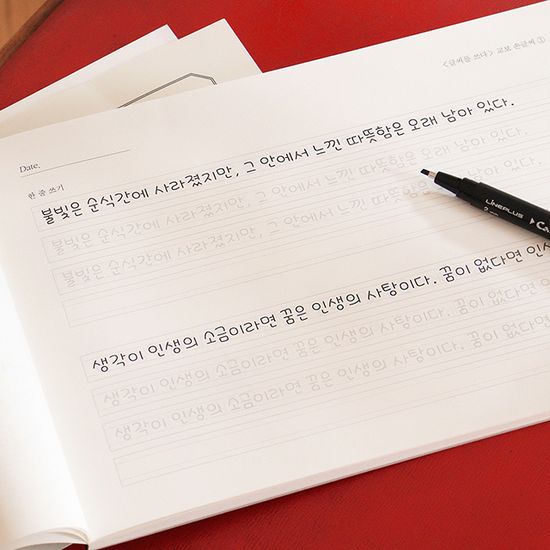 <글씨를 쓰다> 교보 손글씨 ①
Date.
한 줄 쓰기
불빛은 순식간에 사라졌지만, 그 안에서 느낀 따뜻함은 오래 남아 있다.
불빛은 순식간에 사라졌지만, 그 안에서 느낀 따뜻함은 오래 남아 있다.
불빛은 순식간에 사라졌지만, 그 안에서 느낀 따뜻함은 오래 남아 있다.
LINEPLUS
생각이 인생의 소금이라면 꿈은 인생의 사탕이다. 꿈이 없다면 인
생각이 인생의 소금이라면 꿈은 인생의 사탕이다. 꿈이 없다면 인
생각이 인생의 소금이라면 꿈은 인생의 사탕이다. 꿈이 없다면